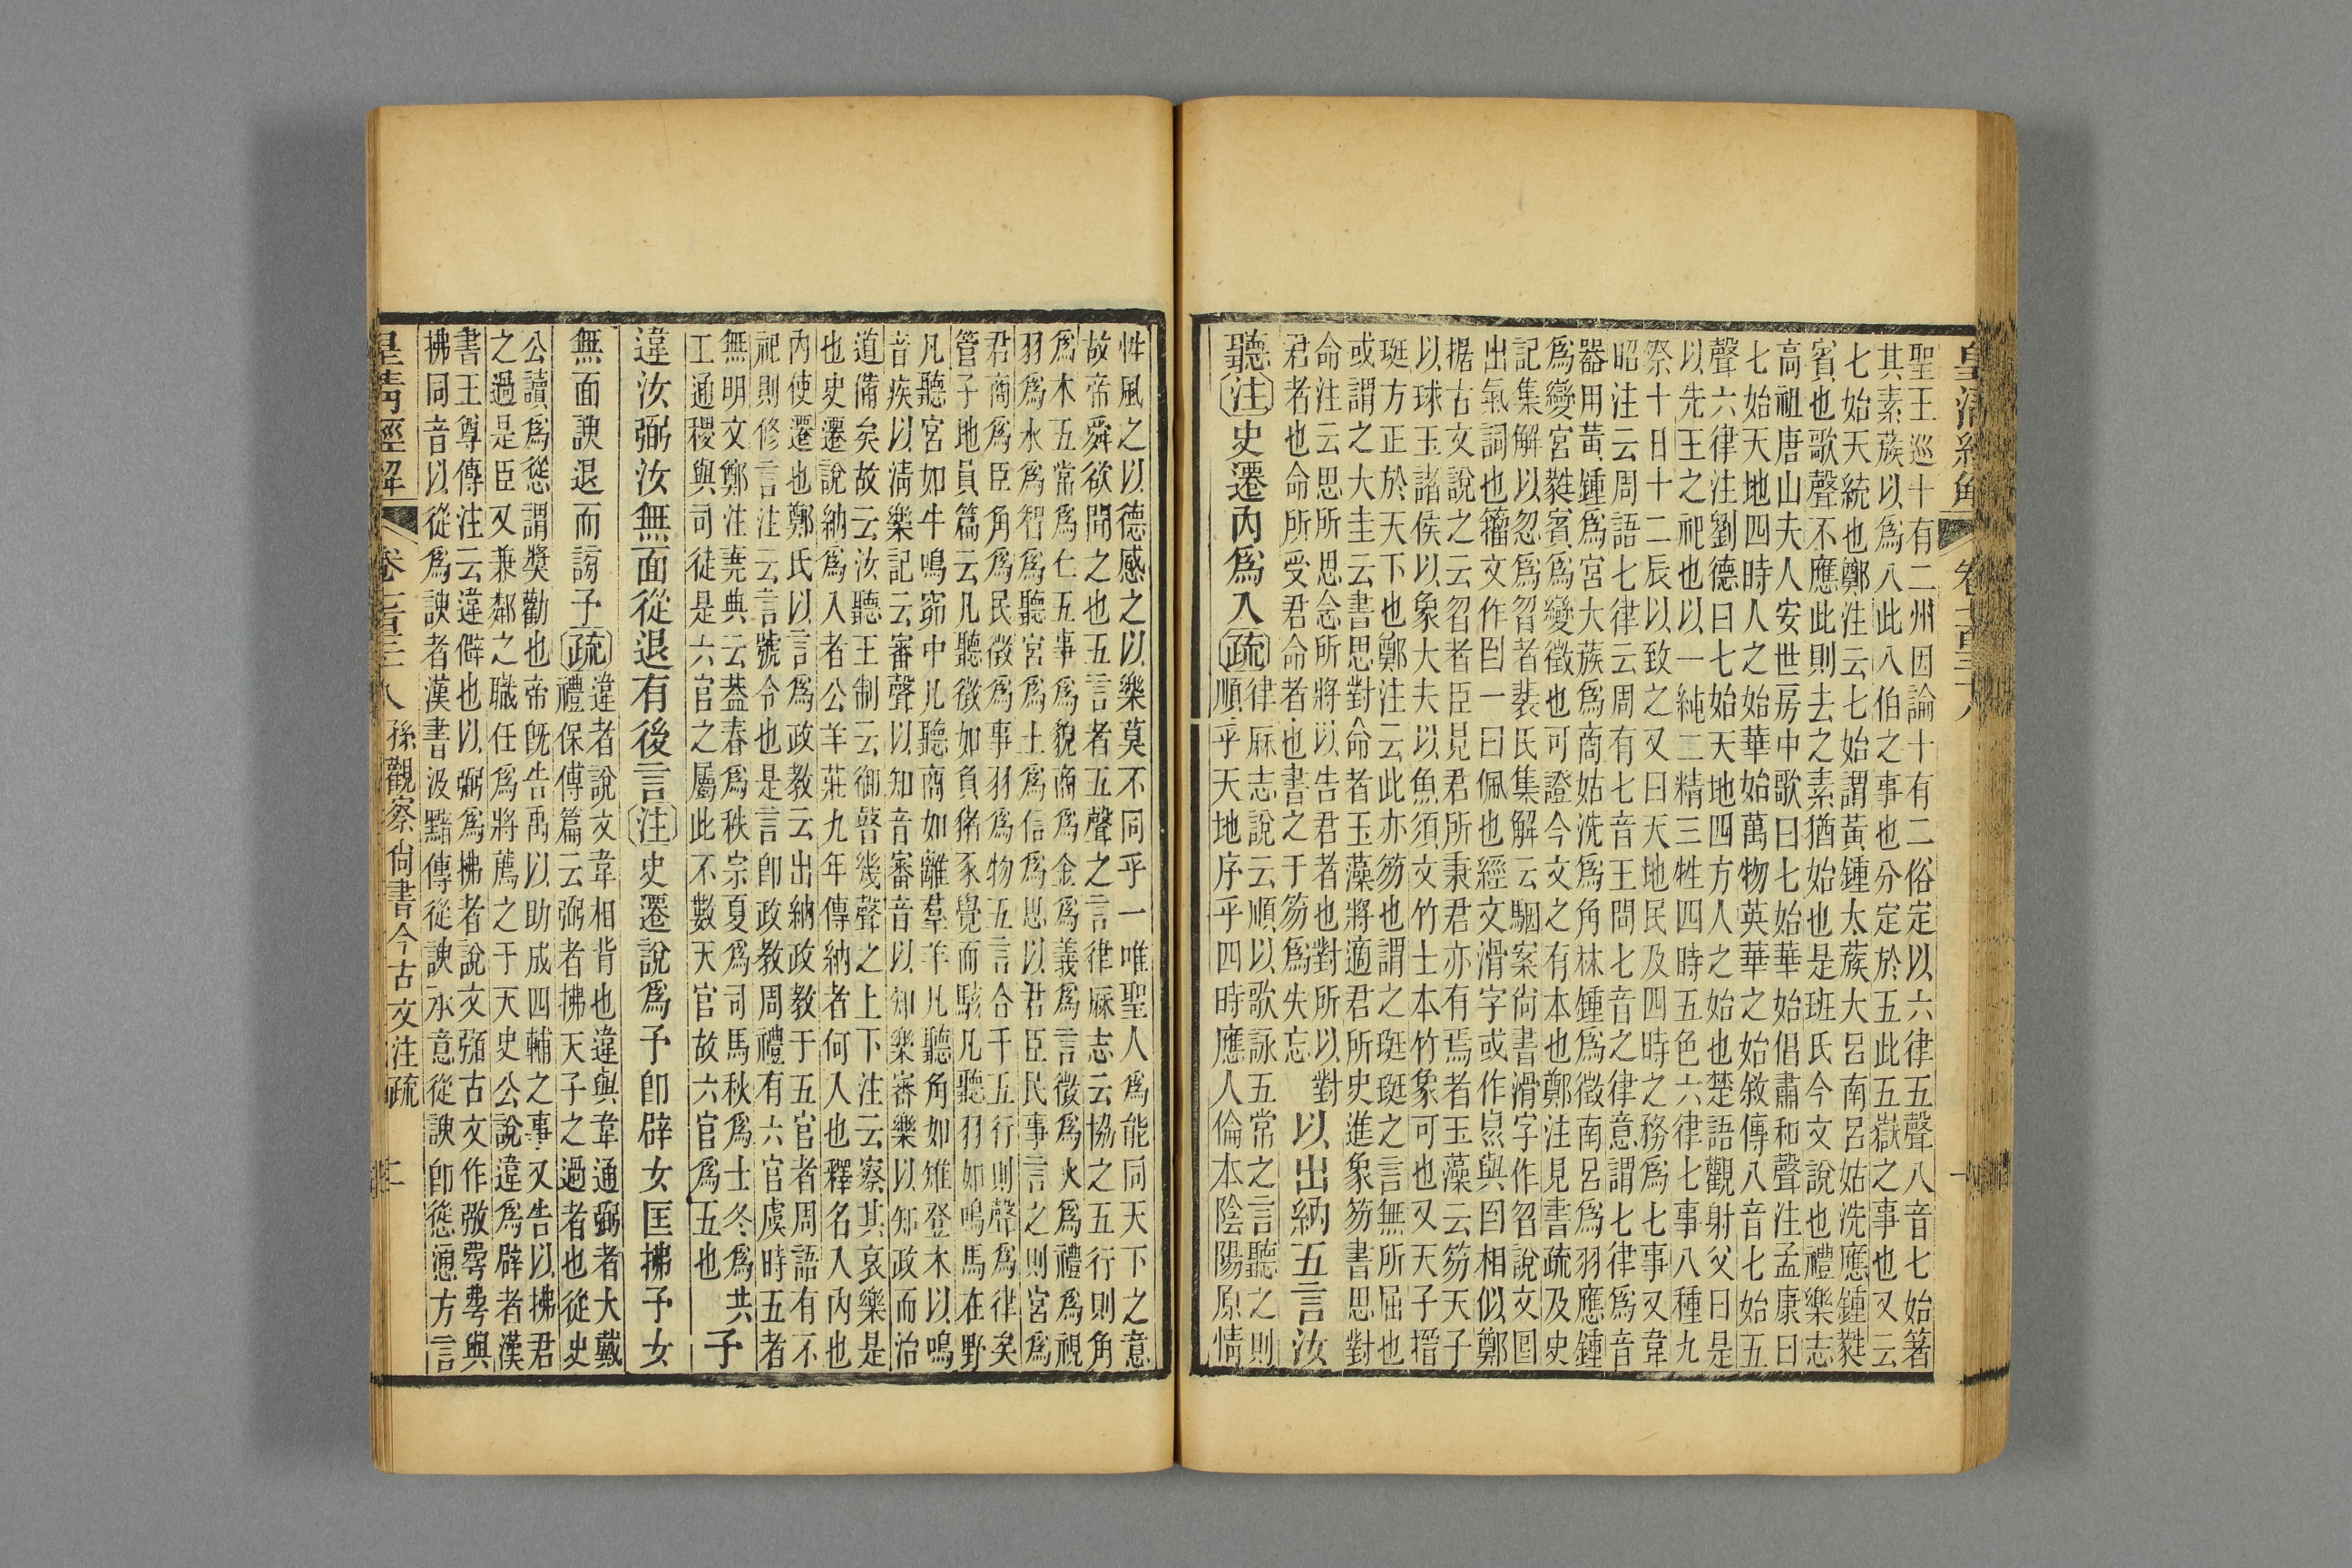 皇清經解 卷七百三十八
聖王巡十有二州因論十有二俗定以六律五聲八音七始著
其素族以爲八此八伯之事也分定於五此五嶽之事也又云
七始天統也鄭注云七始謂黃鍾太蔟大呂南呂姑洗應鍾蕤
賓也歌聲不應此則去之素猶始也是班氏今文說也禮樂志
高祖唐山夫人安世房中歌曰七始華始倡肅和聲注孟康曰
七始天地四時人之始華始萬物英華之始敘傳八音七始五
聲六律注劉德曰七始天地四方人之始也楚語觀射父曰是
以先王之祀也以一純二精三牲四時五色六律七事八種九
祭十日十二辰以致之又曰天地民及四時之務爲七事又韋
昭注云周語七律云周有七音王問七音之律意謂七律爲音
器用黃鍾爲宮大蔟爲商姑洗爲角林鍾爲徵南呂爲羽應鍾
爲變宮蕤賓爲變徵也可證今文之有本也鄭注見書疏及史
記集解以忽爲曶者裴氏集解云駰案尚書滑字作曶說文
出氣詞也籀文作一曰佩也經文滑字或作與相似鄭
据古文說之云曶者臣見君所秉君亦有焉者玉藻云笏天子
以球玉諸侯以象大夫以魚須文竹士本竹象可也又天子搢
珽方正於天下也鄭注云此亦笏也謂之珽珽之言無所屈也
或謂之大圭云書思對命者玉藻將適君所史進象笏書思對
命注云思所思念所將以告君者也對所以對
君者也命所受君命者也書之于笏爲失忘
以出納五言汝
聽注史遷內爲入疏
律厤志說云順以歌詠五常之言聽之則
順乎天地序乎四時應人倫本陰陽原情
性風之以德感之以樂莫不同乎一唯聖人爲能同天下之意
故帝舜欲聞之也五言者五聲之言律厤志云協之五行則角
爲木五常爲仁五事爲貌商爲金爲義爲言徵爲火爲禮爲視
羽爲水爲智爲聽宮爲土爲信爲思以君臣民事言之則宮爲
君商爲臣角爲民徵爲事羽爲物五言合于五行則聲爲律矣
管子地員篇云凡聽徵如負豬豕覺而駭凡聽羽如鳴馬在野
凡聽宮如牛鳴窌中凡聽商如離羣羊凡聽角如雉登木以鳴
音疾以清樂記云審聲以知音審音以知樂審樂以知政而治
道備矣故云汝聽王制云御瞽幾聲之上下注云察其哀樂是
也史遷說納爲入者公羊莊九年傳納者何入也釋名入內也
內使還也鄭氏以言爲政教云出納政教于五官者周語有不
祀則修言注云言號令也是言卽政教周禮有六官虞時五者
無明文鄭注堯典云葢春爲秩宗夏爲司馬秋爲士冬爲共
工通稷與司徒是六官之屬此不數天官故六官爲五也
予
違汝弼汝無面從退有後言注史遷說爲予卽辟女匡拂予女
無面諛退而謗予疏
違者說文韋相背也違與韋通弼者大戴
禮保傅篇云弼者拂天子之過者也從史
公讀爲慫謂奬勸也帝旣告禹以助成四輔之事又告以拂君
之過是臣又兼鄰之職任爲將薦之于天史公說違爲辟者漢
書王尊傳注云違僻也以弼爲拂者說文彌古文作㢸與
拂同音以從爲諛者漢書汲黯傳從諛承意從諛卽慫慂方言
皇清經解 卷七百三十八 孫觀察尚書今古文注疏 二